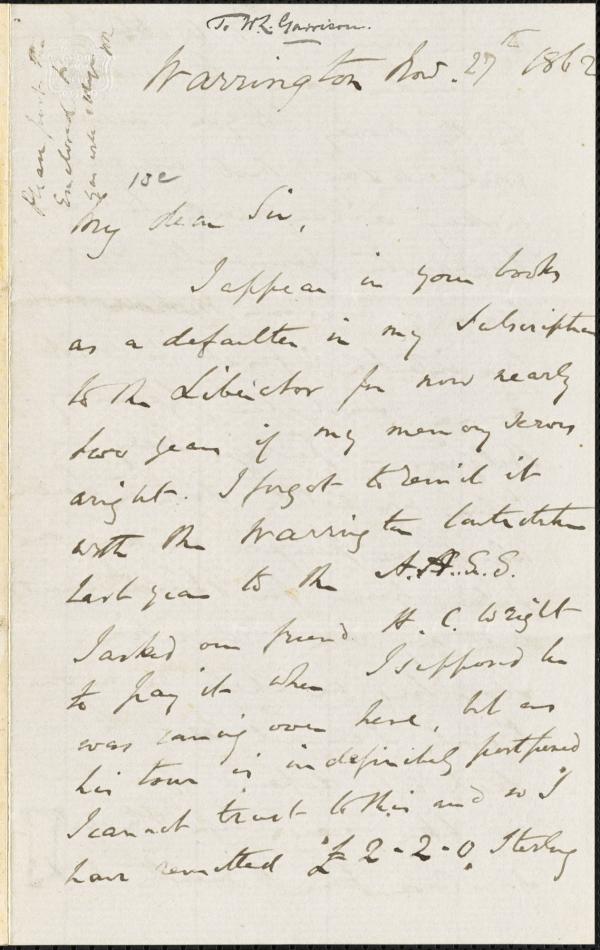 To W.L. Garrison.
Warrington Nov. 27th 1862
Please post the
Enclosed &
you will oblige
My dear Sir,
I appear in your books
as a defaulter in my Subscription
to the Liberator for now nearly
two years if my memory serves
aright. I forgot to remit it
with the Warrington Contribution
last year to the A.A.S.S.
I asked our friend H. C. Wright
to pay it when I supposed he
was coming over here, but as
his tour is indefinitely postponed
I cannot trust to this and so I
have remitted £2-2-0 Sterling